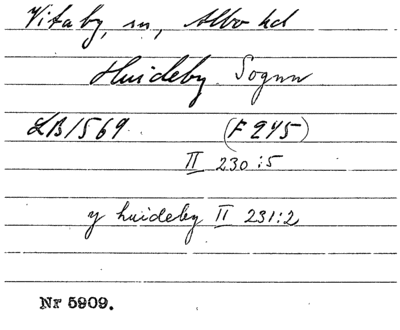 Vitaby, sn, Albo hd
Huideby Sognn
LB 1569 (F 245)
II 230:5
y huideby II 231:2
Nr 5909.